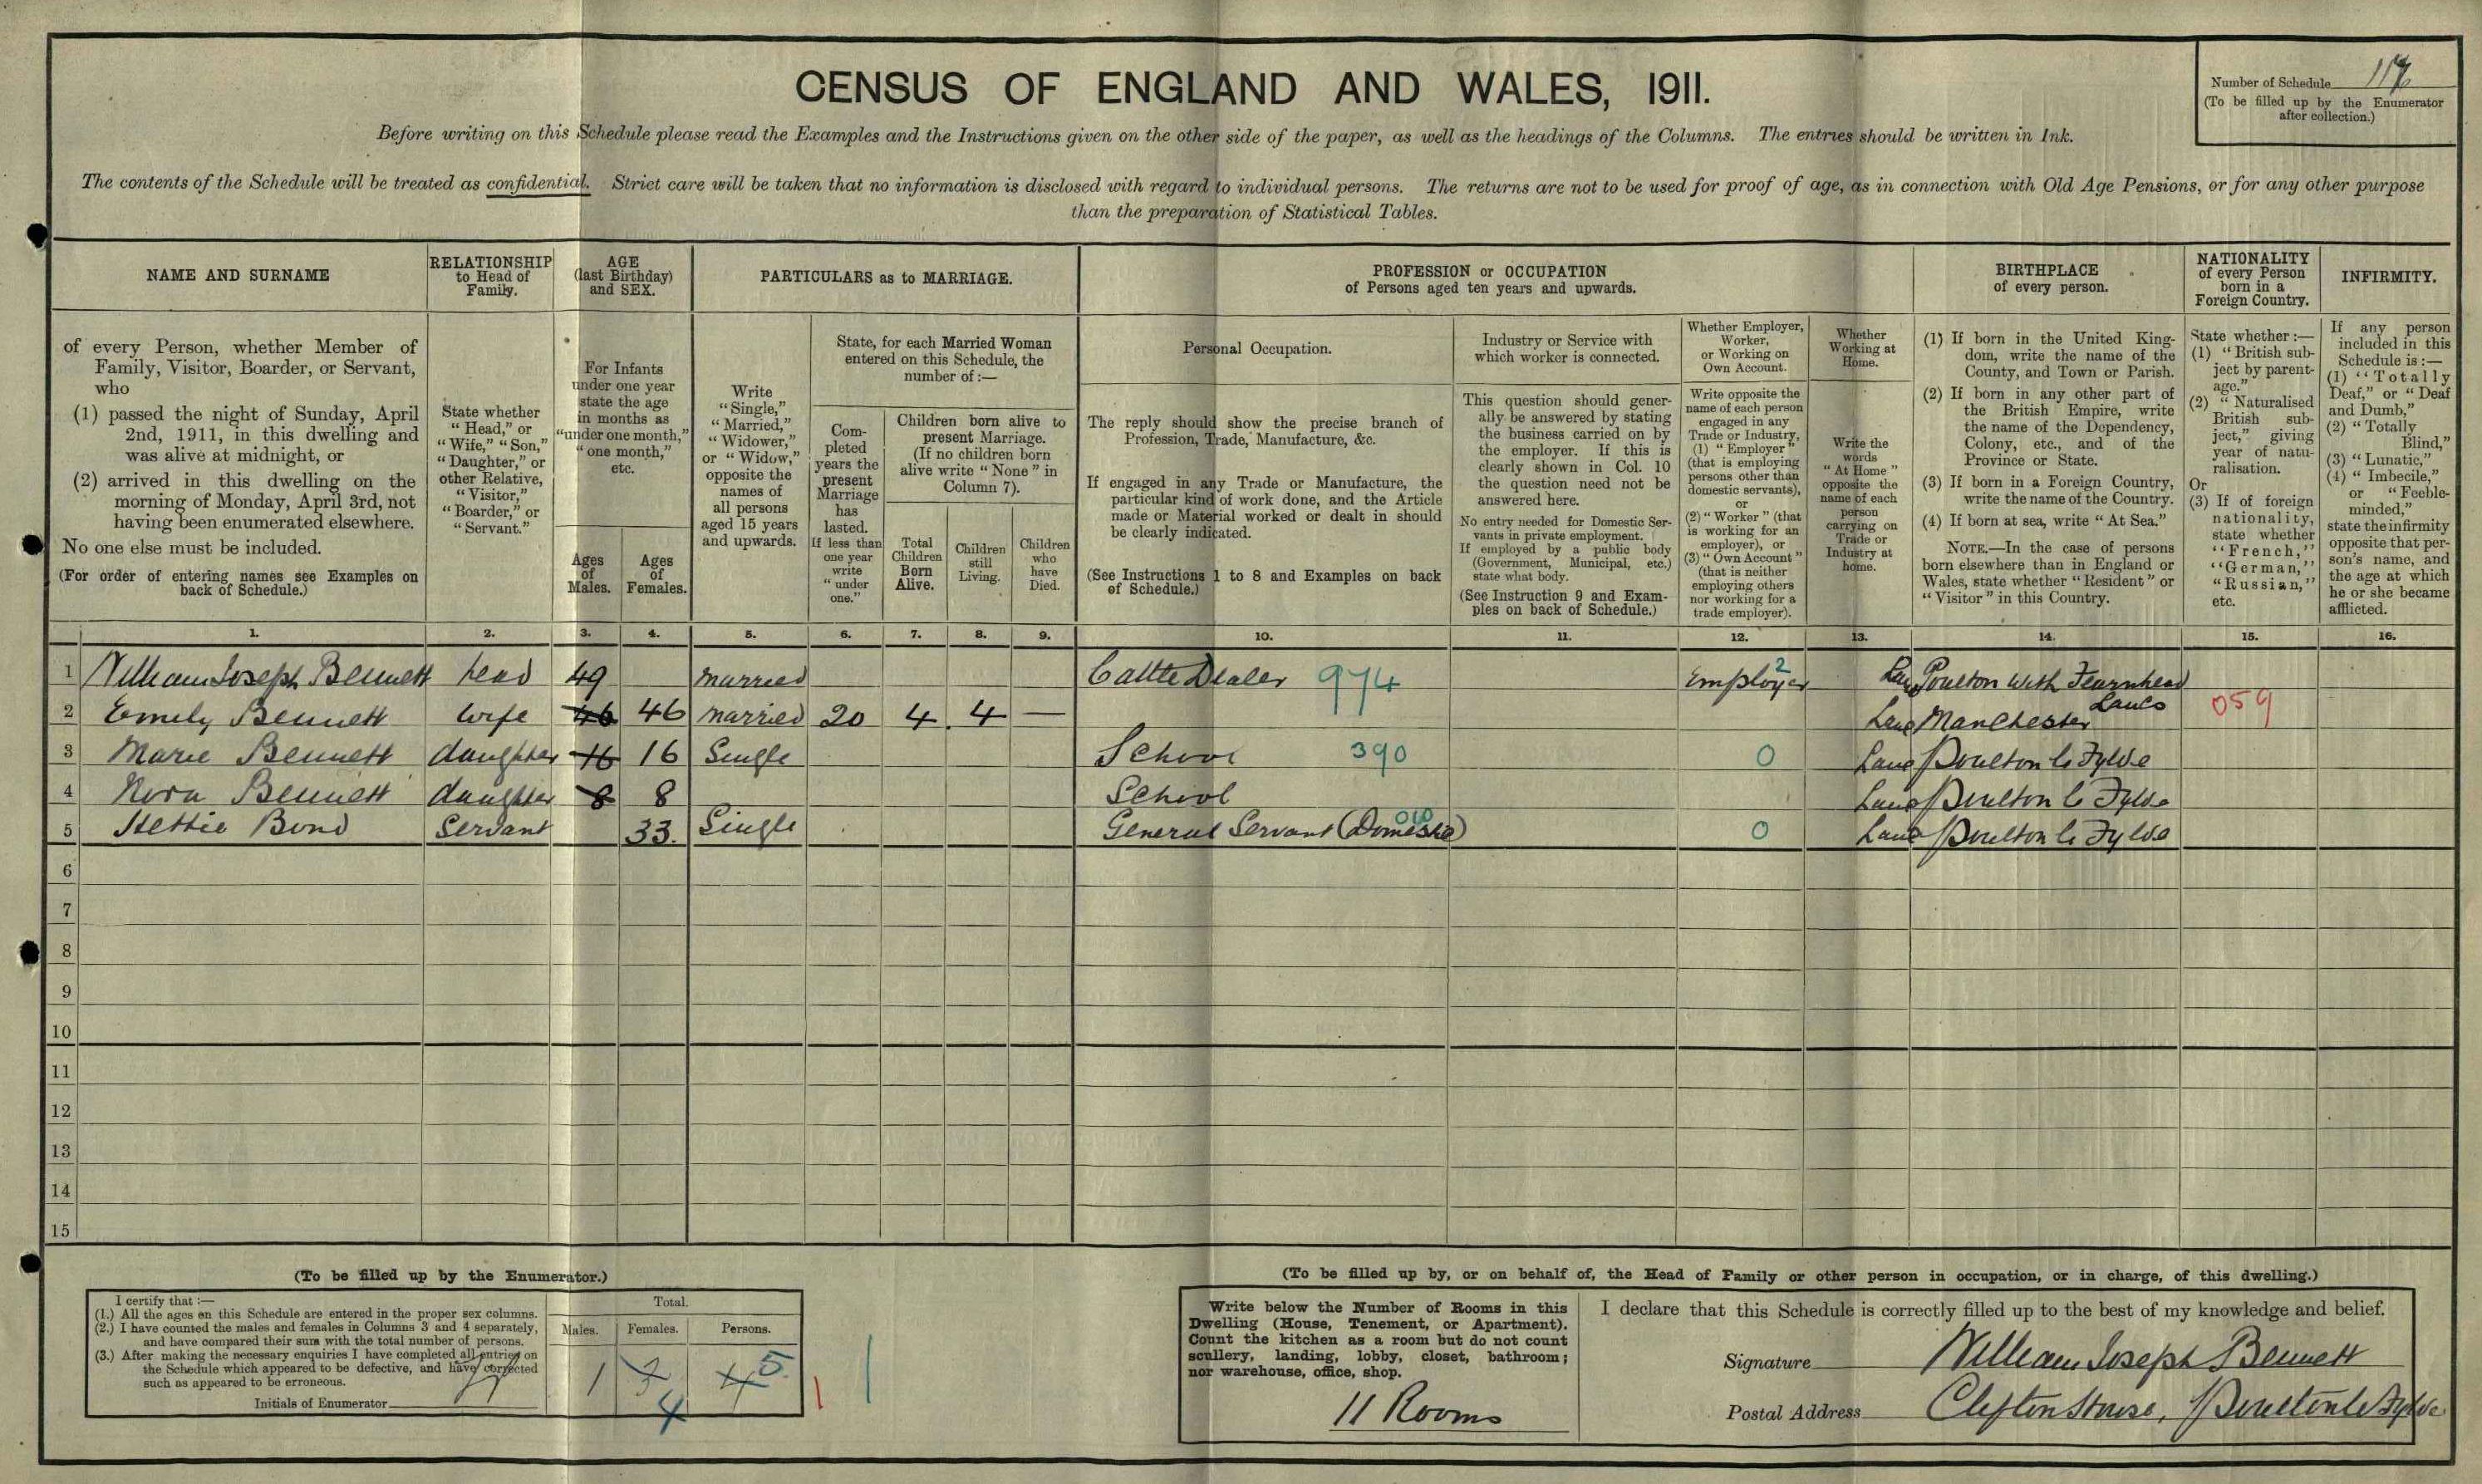 CENSUS OF ENGLAND AND WALES, 1911.
Number of Schedule
(To be filled up by the Enumerator
after collection.)
Before writing on this Schedule please read the Examples and the Instructions given on the other side of the paper, as well as the headings of the Columns. The entries should be written in Ink.
The contents of the Schedule will be treated as confidential. Strict care will be taken that no information is disclosed with regard to individual persons. The returns are not to be used for proof of age, as in connection with Old Age Pensions, or for any other purpose
than the preparation of Statistical Tables.
NAME AND SURNAME
of every Person, whether Member of
Family, Visitor, Boarder, or Servant,
who
(1) passed the night of Sunday, April
2nd, 1911, in this dwelling and
was alive at midnight, or
(2) arrived in this dwelling on the
morning of Monday, April 3rd, not
having been enumerated elsewhere.
No one else must be included.
(For order of entering names see Examples on
back of Schedule.)
RELATIONSHIP
to Head of
Family.
State whether
"Head," or
"Wife," "Son,"
"Daughter," or
other Relative,
"Visitor,"
"Boarder," or
"Servant."
AGE
(last Birthday)
and SEX.
For Infants
under one year
state the age
in months as
"under one month,"
"one month,"
etc.
Ages
of
Males.
Ages
of
Females.
PARTICULARS as to MARRIAGE.
Write
"Single,"
"Married,"
"Widower,"
or "Widow,"
opposite the
names of
all persons
aged 15 years
and upwards.
State, for each Married Woman
entered on this Schedule, the
number of :—
Com-
pleted
years the
present
Marriage
has
lasted.
If less than
one year
write
"under
one."
Children born alive to
present Marriage.
(If no children born
alive write "None" in
Column 7).
Total
Children
Born
Alive.
Children
still
Living.
Children
who
have
Died.
PROFESSION or OCCUPATION
of Persons aged ten years and upwards.
Personal Occupation.
The reply should show the precise branch of
Profession, Trade, Manufacture, &c.
If engaged in any Trade or Manufacture, the
particular kind of work done, and the Article
made or Material worked or dealt in should
be clearly indicated.
(See Instructions 1 to 8 and Examples on back
of Schedule.)
Industry or Service with
which worker is connected.
This question should gener-
ally be answered by stating
the business carried on by
the employer. If this is
clearly shown in Col. 10
the question need not be
answered here.
No entry needed for Domestic Ser-
vants in private employment.
If employed by a public body
(Government, Municipal, etc.)
state what body.
(See Instruction 9 and Exam-
ples on back of Schedule.)
Whether Employer,
Worker,
or Working on
Own Account.
Write opposite the
name of each person
engaged in any
Trade or Industry,
(1) "Employer"
(that is employing
persons other than
domestic servants),
or
(2) "Worker" (that
is working for an
employer), or
(3) "Own Account"
(that is neither
employing others
nor working for a
trade employer).
Whether
Working at
Home.
Write the
words
"At Home"
opposite the
name of each
person
carrying on
Trade or
Industry at
home.
BIRTHPLACE
of every person.
(1) If born in the United King-
dom, write the name of the
County, and Town or Parish.
(2) If born in any other part of
the British Empire, write
the name of the Dependency,
Colony, etc., and of the
Province or State.
(3) If born in a Foreign Country,
write the name of the Country.
(4) If born at sea, write "At Sea."
NOTE.—In the case of persons
born elsewhere than in England or
Wales, state whether "Resident" or
"Visitor" in this Country.
NATIONALITY
of every Person
born in a
Foreign Country.
State whether :—
(1) "British sub-
ject by parent-
age."
(2) "Naturalised
British sub-
ject," giving
year of natu-
ralisation.
Or
(3) If of foreign
nationality,
state whether
"French,"
"German,"
"Russian,"
etc.
INFIRMITY.
If any person
included in this
Schedule is :—
(1) "Totally
Deaf," or "Deaf
and Dumb,"
(2) "Totally
Blind,"
(3) "Lunatic,"
(4) "Imbecile,"
or "Feeble-
minded,"
state the infirmity
opposite that per-
son's name, and
the age at which
he or she became
afflicted.
1. 2. 3. 4. 5. 6. 7. 8. 9. 10. 11. 12. 13. 14. 15. 16.
1 William Joseph Bennett head 49 married Cattle Dealer 974 Employer 2 Poulton with Fearnhead
Lancs
2 Emily Bennett wife 46 46 married 20 4 4 — Lanc Manchester 059
3 Marie Bennett daughter 16 16 Single School 390 0 Lanc Poulton le Fylde
4 Nora Bennett daughter 8 8 School Lanc Poulton le Fylde
5 Hettie Bond Servant 33. Single General Servant (Domestic) 010 0 Lanc Poulton le Fylde
6
7
8
9
10
11
12
13
14
15
(To be filled up by the Enumerator.)
I certify that :—
(1.) All the ages on this Schedule are entered in the proper sex columns.
(2.) I have counted the males and females in Columns 3 and 4 separately,
and have compared their sum with the total number of persons.
(3.) After making the necessary enquiries I have completed all entries on
the Schedule which appeared to be defective, and have corrected
such as appeared to be erroneous.
Initials of Enumerator
Total.
Males. Females. Persons.
1 3 4 5
4
(To be filled up by, or on behalf of, the Head of Family or other person in occupation, or in charge, of this dwelling.)
Write below the Number of Rooms in this
Dwelling (House, Tenement, or Apartment).
Count the kitchen as a room but do not count
scullery, landing, lobby, closet, bathroom;
nor warehouse, office, shop.
11 Rooms
I declare that this Schedule is correctly filled up to the best of my knowledge and belief.
Signature William Joseph Bennett
Postal Address Clifton House, Poulton le Fylde